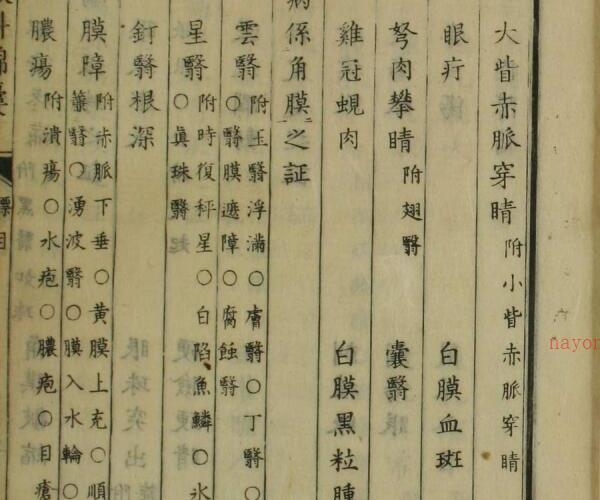 大眥赤脈穿睛 附小眥赤脈穿睛
眼疔 白膜血斑
胬肉攀睛 附翅翳 囊翳
雞冠蜆肉 白膜黑粒
病係角膜之証
雲翳 附玉翳浮滿○膚翳○丁翳○
○翳膜遮障○腐蝕翳
星翳 附時復秤星○白陷魚鱗○氷
○眞珠翳
釘翳根深
膜障 附赤脈下垂○黄膜上充○順
簾翳○湧波翳○膜入水輪○
膿瘍 附潰瘍○水疱○膿疱○目瘡
nayon